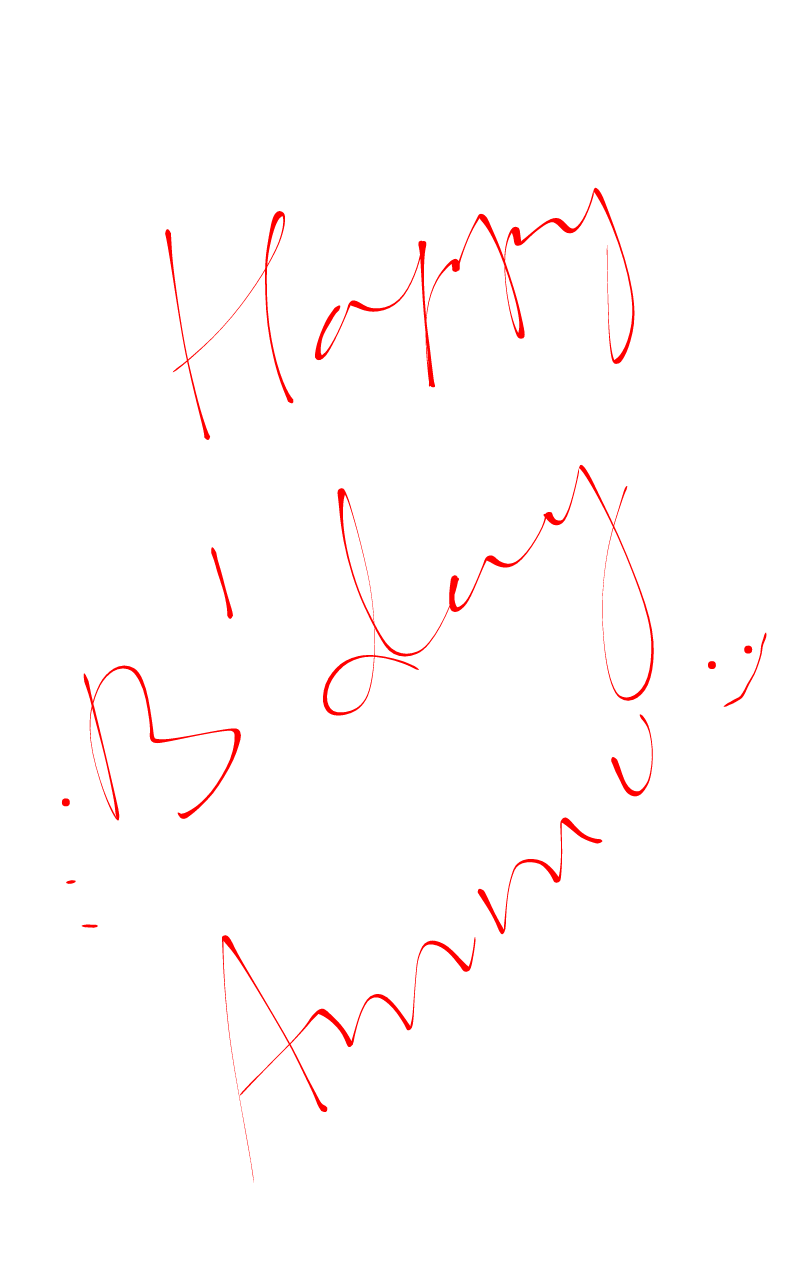 Happy
B'day :)
Ammu